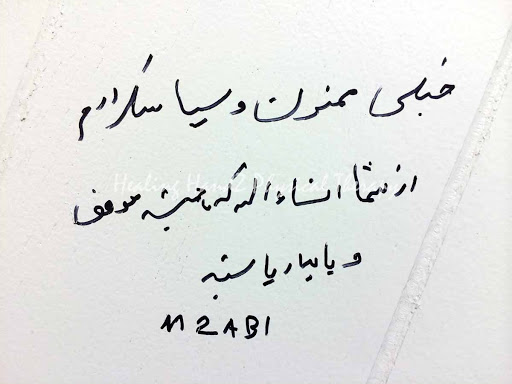 خیلی ممنون و سپاسگزارم
از شما انشاءالله که همیشه موفق
و پایدار باشید
M2ABI